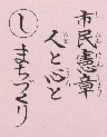 市民憲章
人と心と
し まちづくり